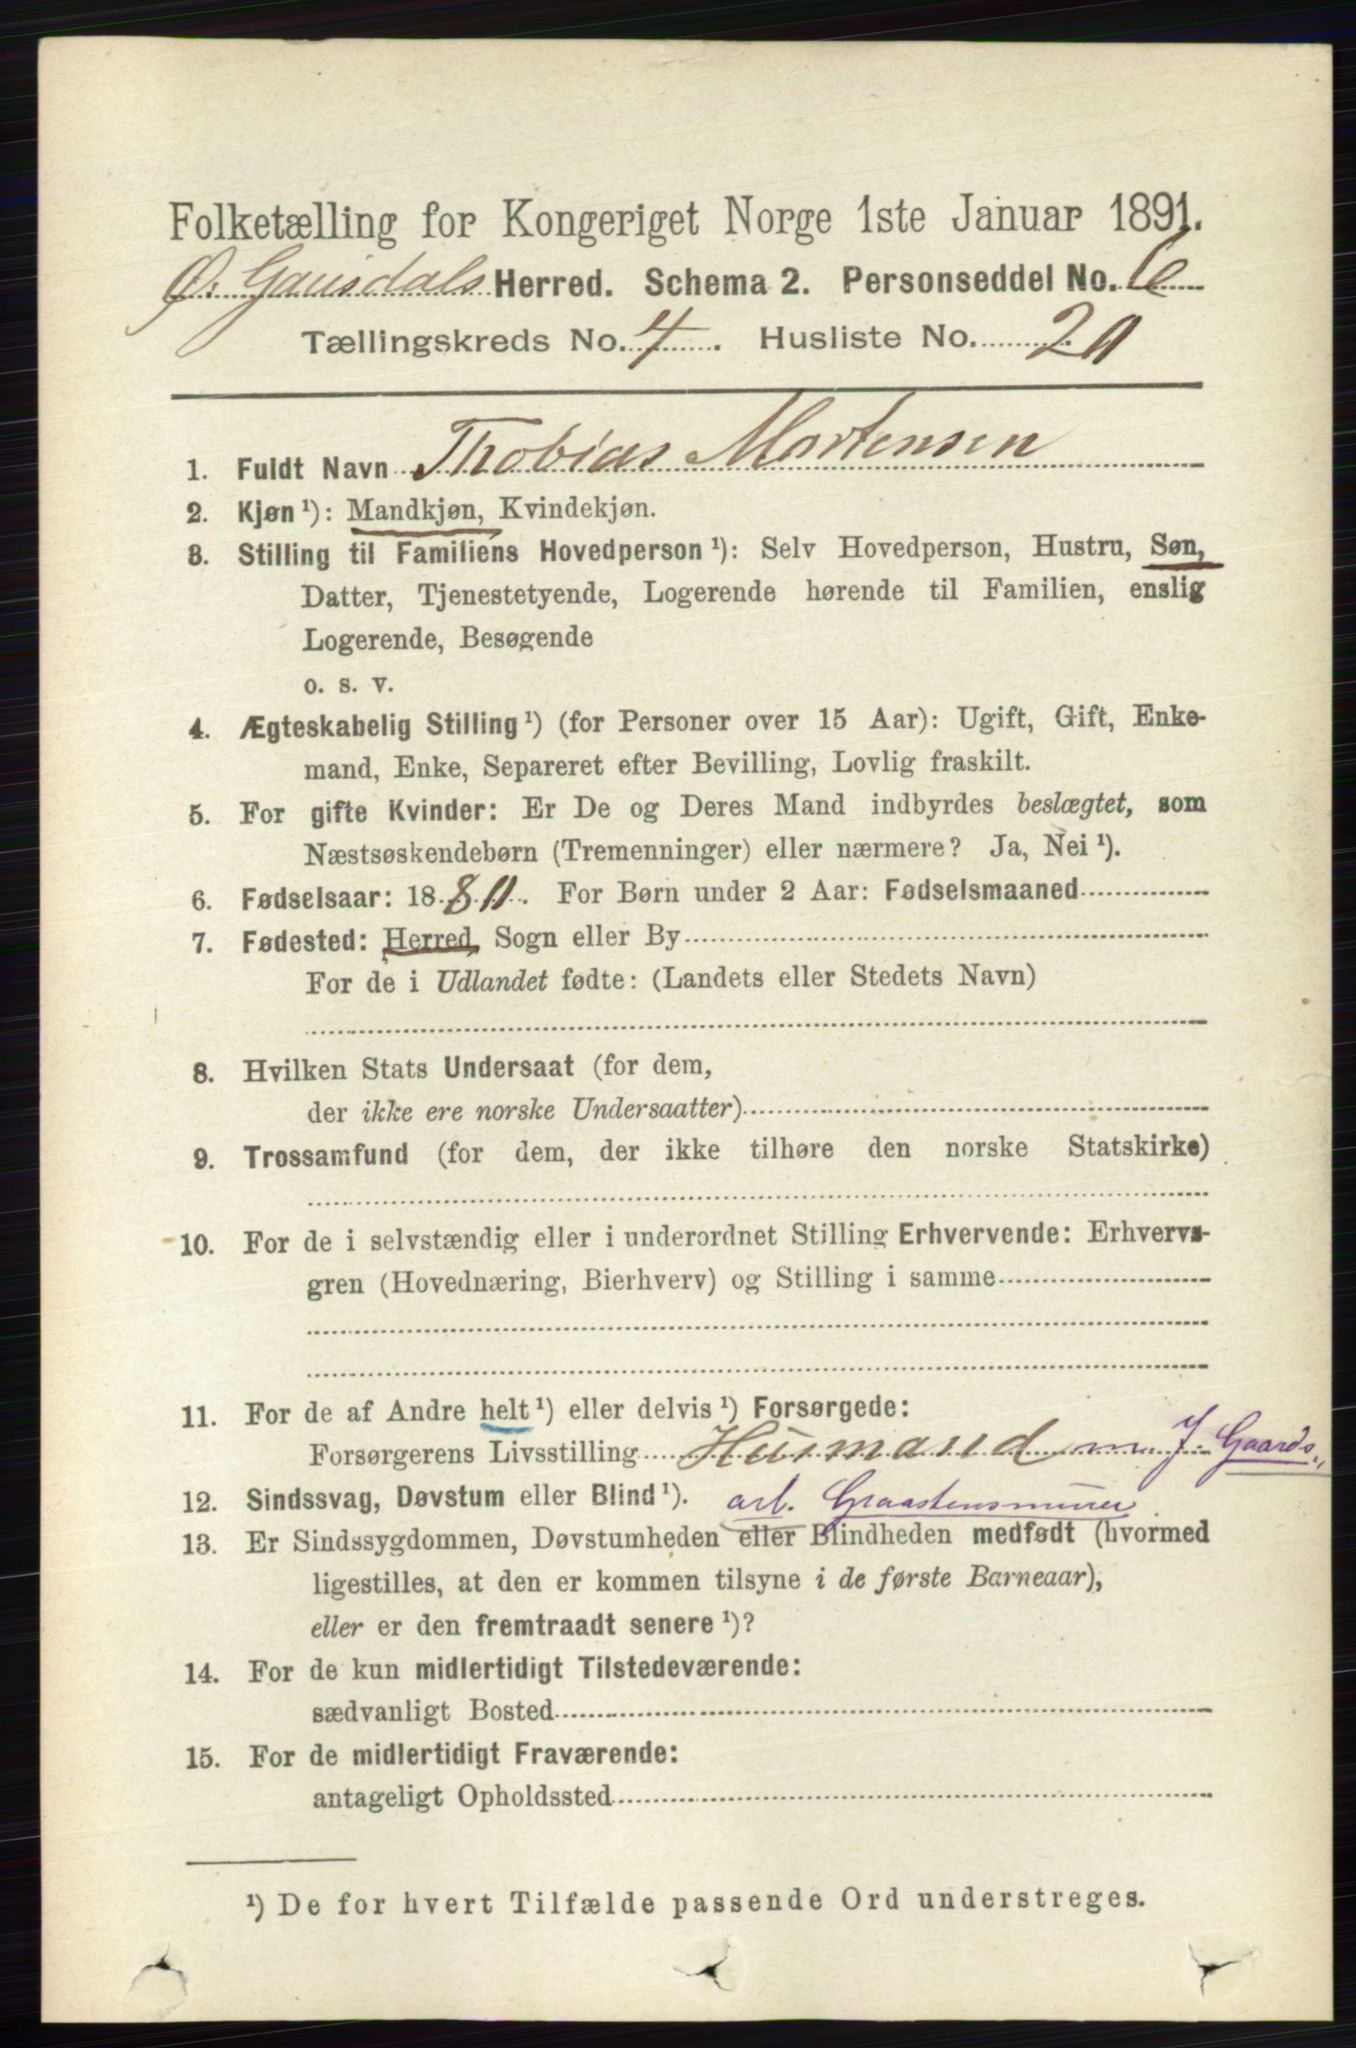 Folketælling for Kongeriget Norge 1ste Januar 1891.
Ø. Gausdals Herred. Schema 2. Personseddel No. 6
Tællingskreds No. 4. Husliste No. 20
1. Fuldt Navn Thobias Mortensen
2. Kjøn ¹): Mandkjøn, Kvindekjøn.
3. Stilling til Familiens Hovedperson ¹): Selv Hovedperson, Hustru, Søn,
Datter, Tjenestetyende, Logerende hørende til Familien, enslig
Logerende, Besøgende
o. s. v.
4. Ægteskabelig Stilling ¹) (for Personer over 15 Aar): Ugift, Gift, Enke-
mand, Enke, Separeret efter Bevilling, Lovlig fraskilt.
5. For gifte Kvinder: Er De og Deres Mand indbyrdes beslægtet, som
Næstsøskendebørn (Tremenninger) eller nærmere? Ja, Nei ¹).
6. Fødselsaar: 1880. For Børn under 2 Aar: Fødselsmaaned
7. Fødested: Herred, Sogn eller By
For de i Udlandet fødte: (Landets eller Stedets Navn)
8. Hvilken Stats Undersaat (for dem,
der ikke ere norske Undersaatter)
9. Trossamfund (for dem, der ikke tilhøre den norske Statskirke)
10. For de i selvstændig eller i underordnet Stilling Erhvervende: Erhvervs-
gren (Hovednæring, Bierhverv) og Stilling i samme
11. For de af Andre helt ¹) eller delvis ¹) Forsørgede:
Forsørgerens Livsstilling Husmand m. J. Gaards
12. Sindssvag, Døvstum eller Blind ¹). arb. Graastensmurer
13. Er Sindssygdommen, Døvstumheden eller Blindheden medfødt (hvormed
ligestilles, at den er kommen tilsyne i de første Barneaar),
eller er den fremtraadt senere ¹)?
14. For de kun midlertidigt Tilstedeværende:
sædvanligt Bosted
15. For de midlertidigt Fraværende:
antageligt Opholdssted
¹) De for hvert Tilfælde passende Ord understreges.